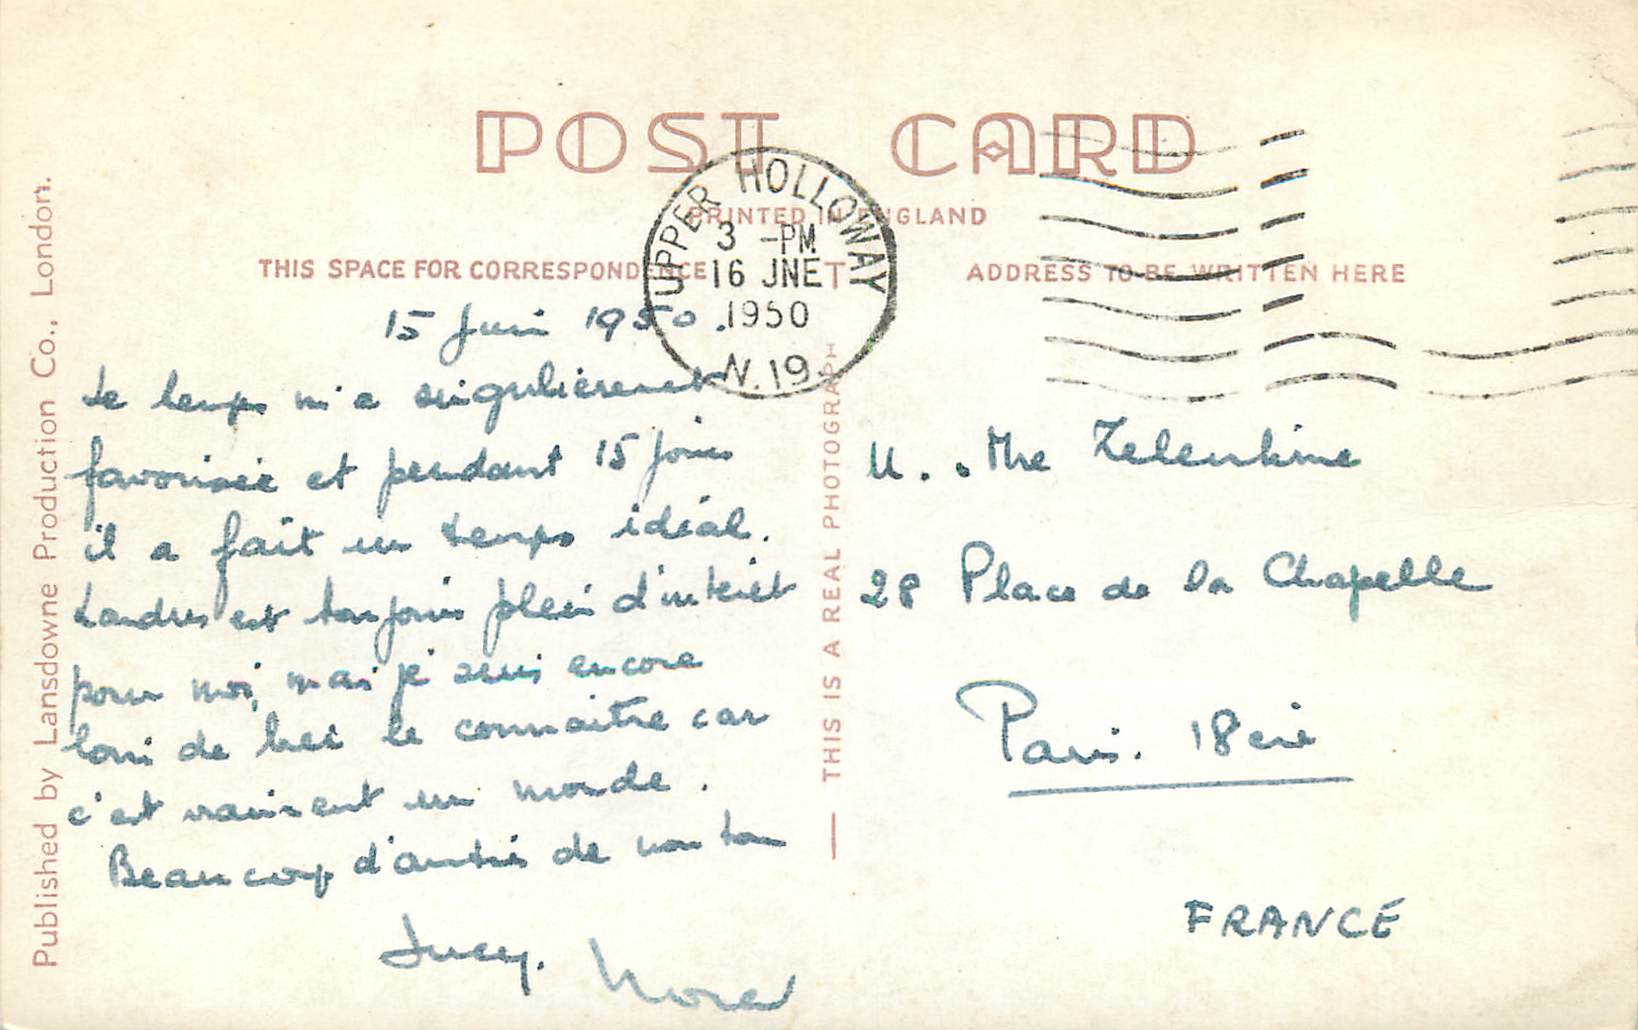 POST CARD
PRINTED IN ENGLAND
THIS SPACE FOR CORRESPONDENCE
ADDRESS TO BE WRITTEN HERE
UPPER HOLLOWAY
3 - PM
16 JNE
1950
N.19
15 Juin 1950.
Le temps m'a singulièrement
favorisée et pendant 15 jours
il a fait un temps idéal.
Londres est toujours plein d'intérêt
pour moi, mais je suis encore
loin de bien le connaitre car
c'est vraiment un monde.
Beaucoup d'amitiés de
Lucy. Nora
M. . Mme
28 Place de la Chapelle
Paris. 18eie
FRANCE
THIS IS A REAL PHOTOGRAPH
Published by Lansdowne Production Co., London.